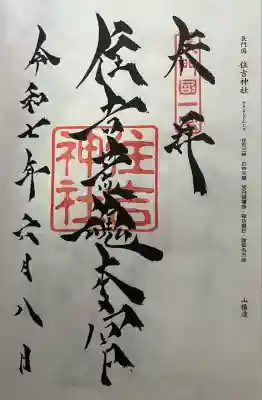 長門国 住吉神社
山陽道
奉拝
長門國一宮
住吉荒魂本宮
住吉神社
令和七年六月八日